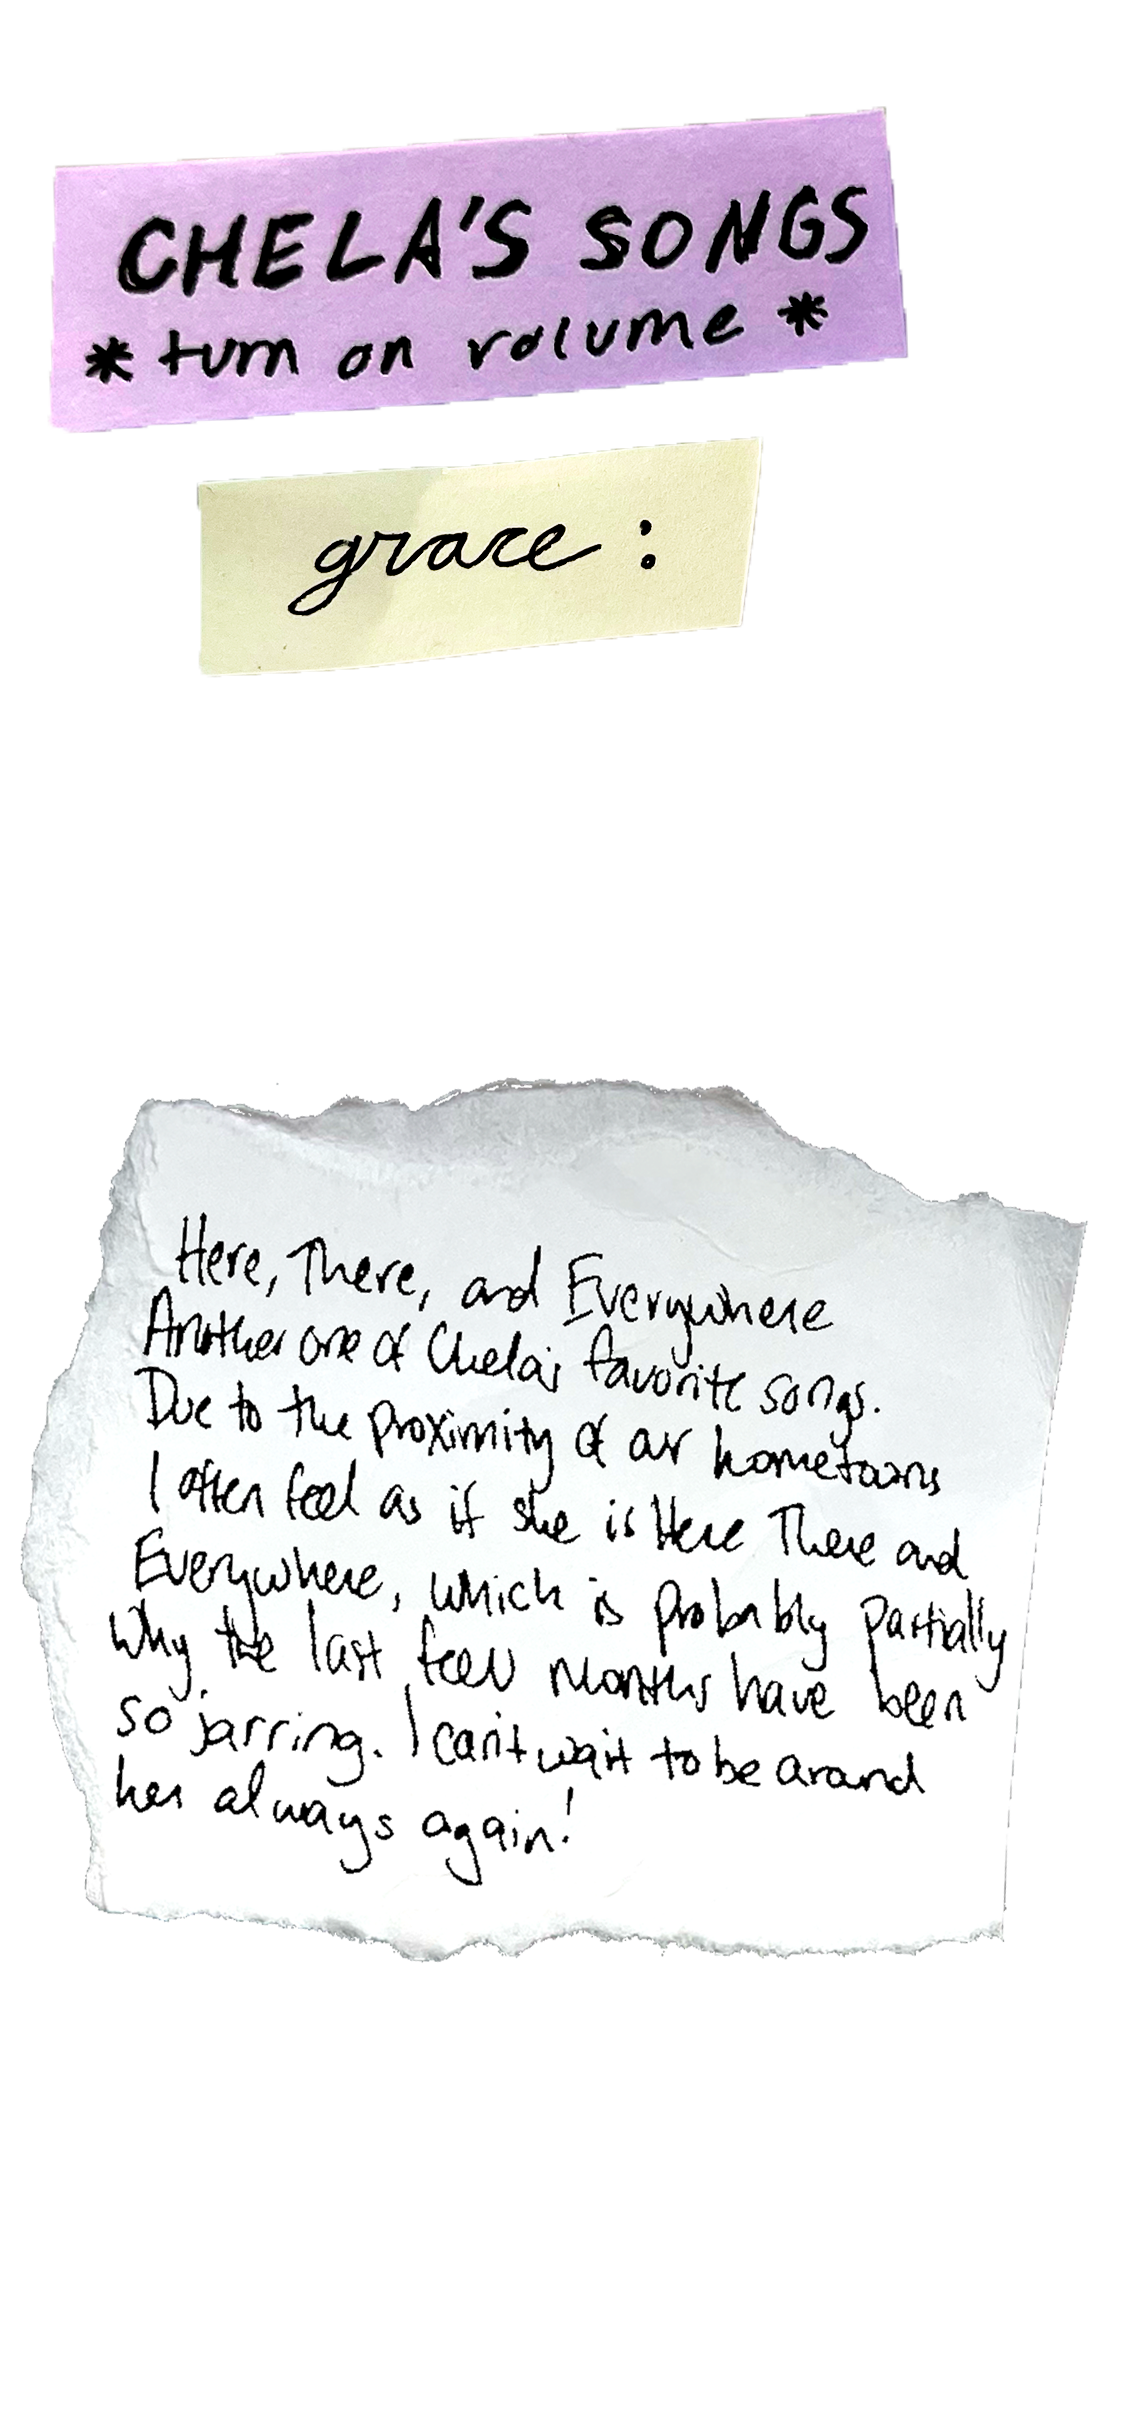 CHELA'S SONGS
* turn on volume *
grace :
Here, There, and Everywhere
Another one of Chela's favorite songs.
Due to the proximity of our hometowns
I often feel as if she is Here There and
Everywhere, which is probably partially
why the last few months have been
so jarring. I can't wait to be around
her always again!